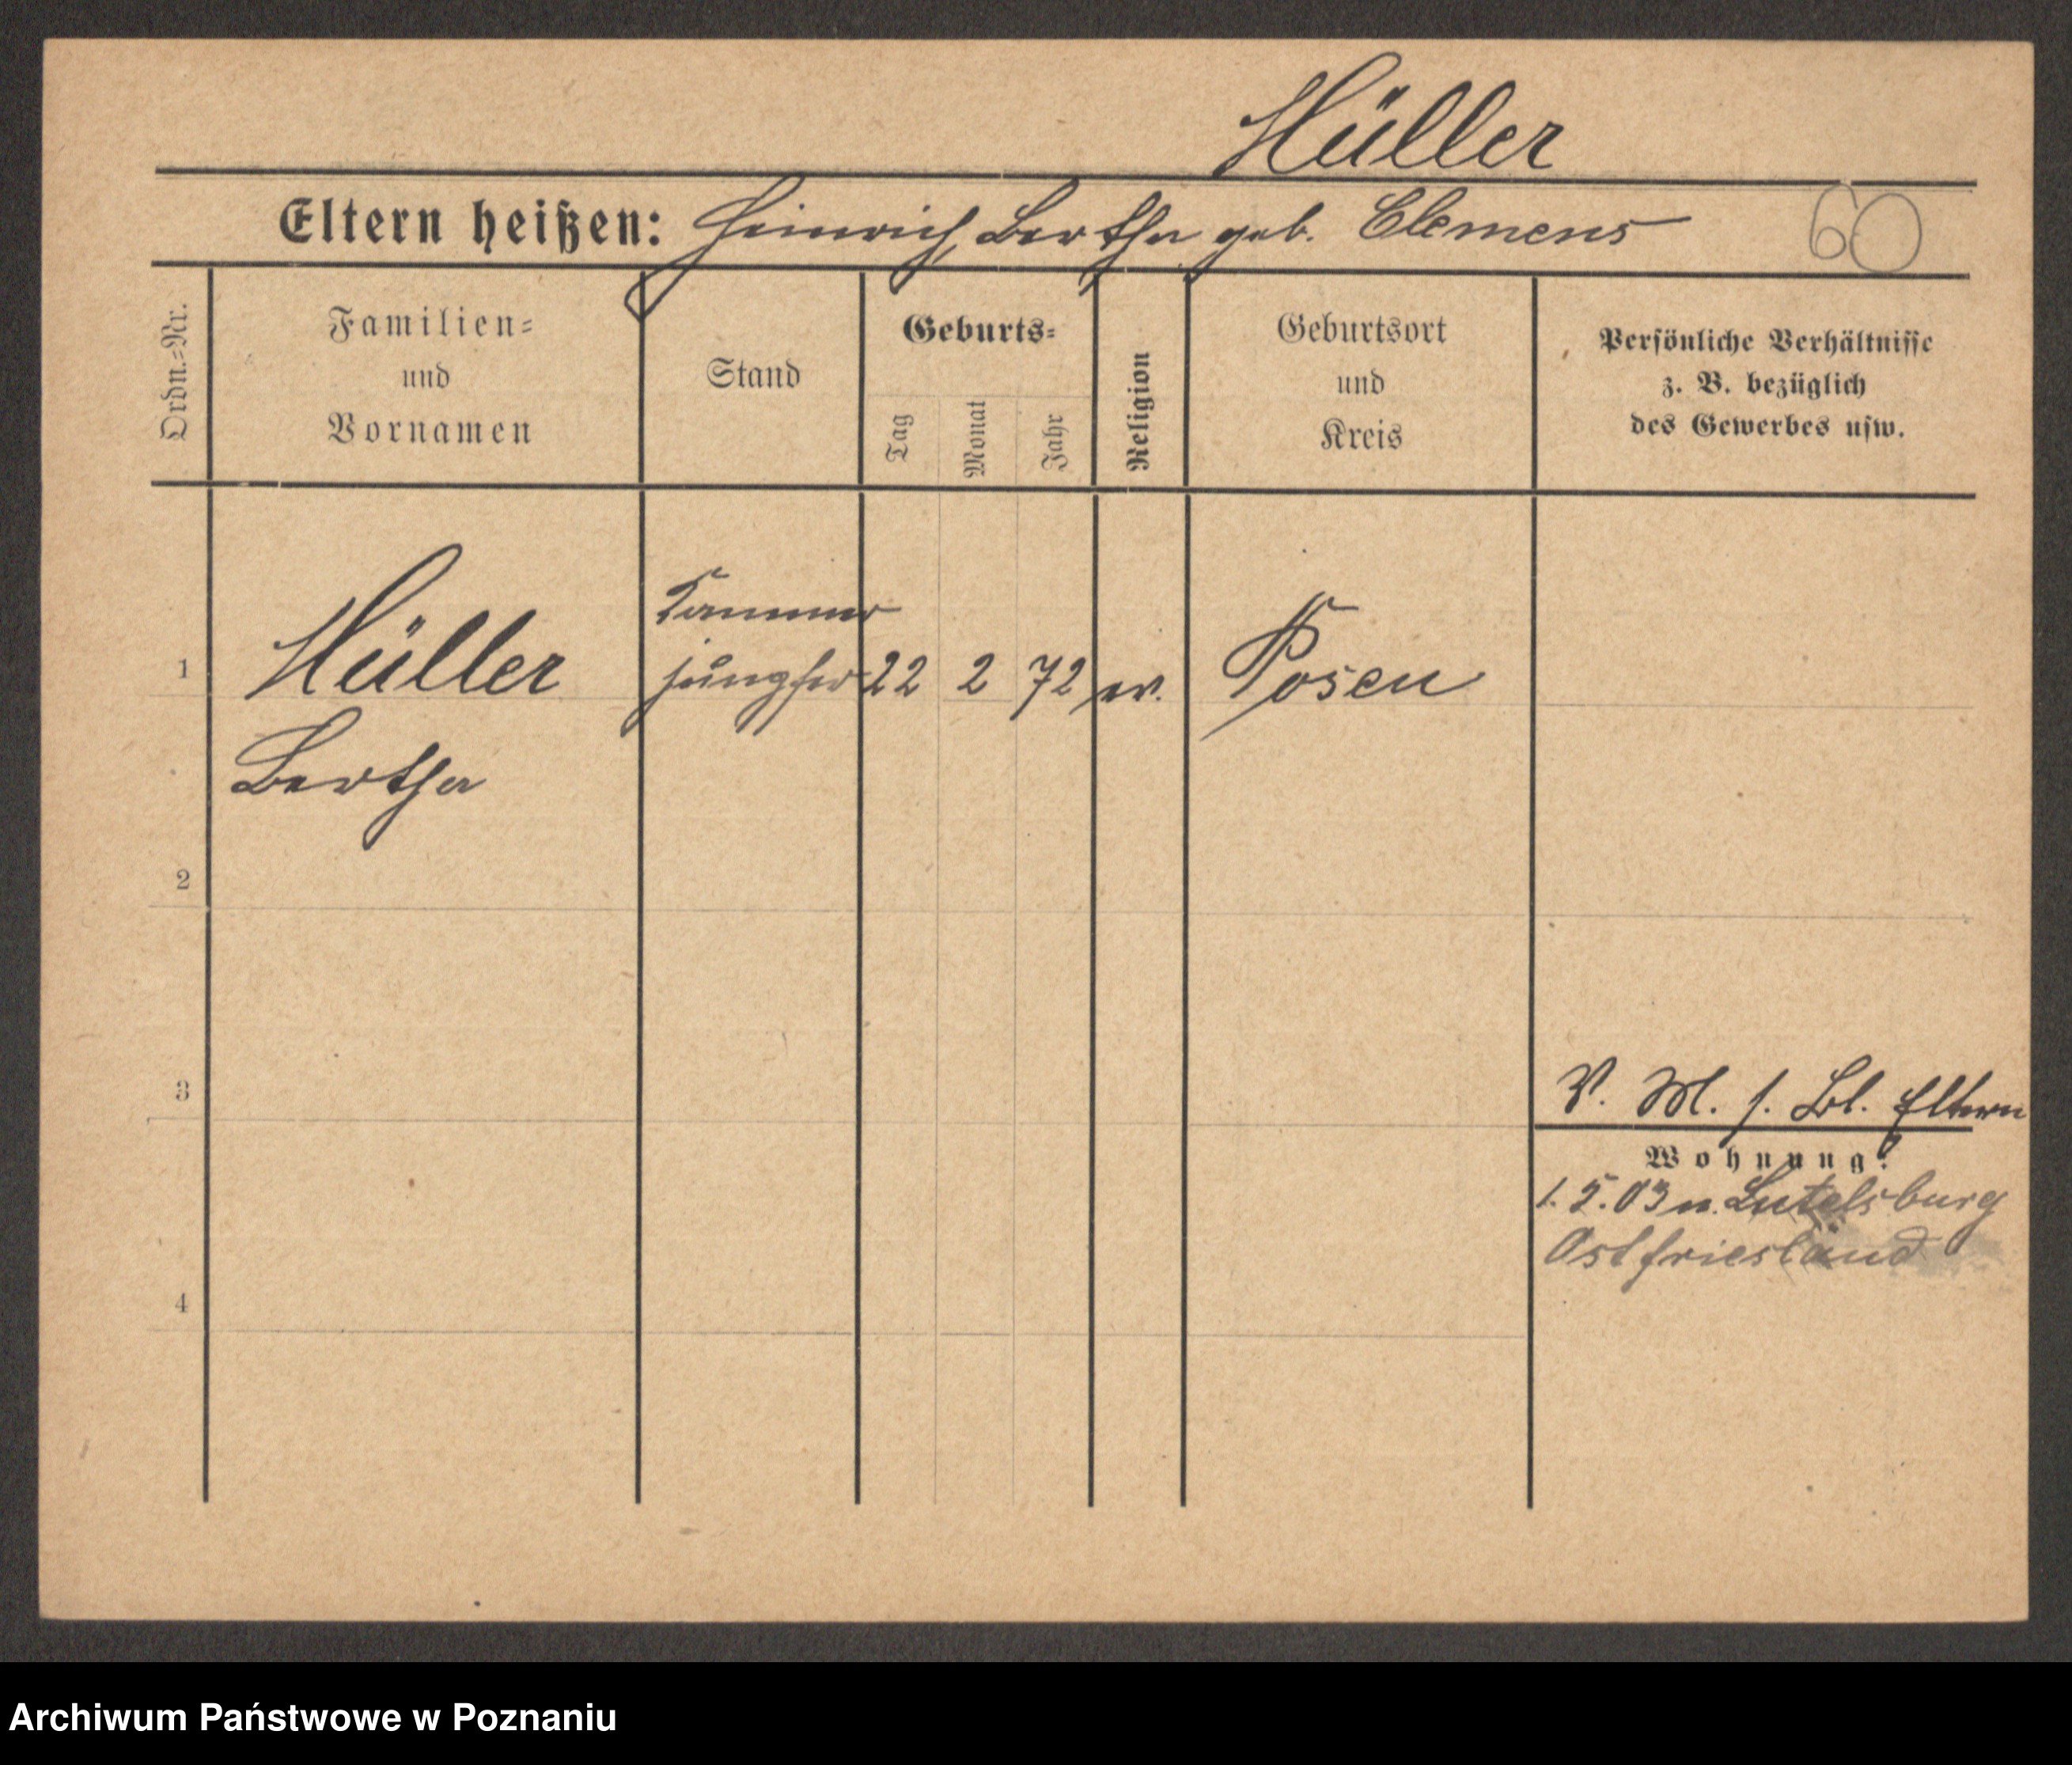 Hüller
Eltern heißen: Heinrich, Bertha geb. Clemens 60
Ordn.=Nr.
Familien=
und
Vornamen
Stand
Geburts=
Tag
Monat
Jahr
Religion
Geburtsort
und
Kreis
Persönliche Verhältnisse
z. B. bezüglich
des Gewerbes usw.
Kammer
1 Hüller jungfer 22 2 72 ev. Posen
Bertha
2
3
V. M. s. Bl. Eltern
Wohnung:
1. 5. 03 n. Lutelsburg
Ostfriesland
4
Archiwum Państwowe w Poznaniu